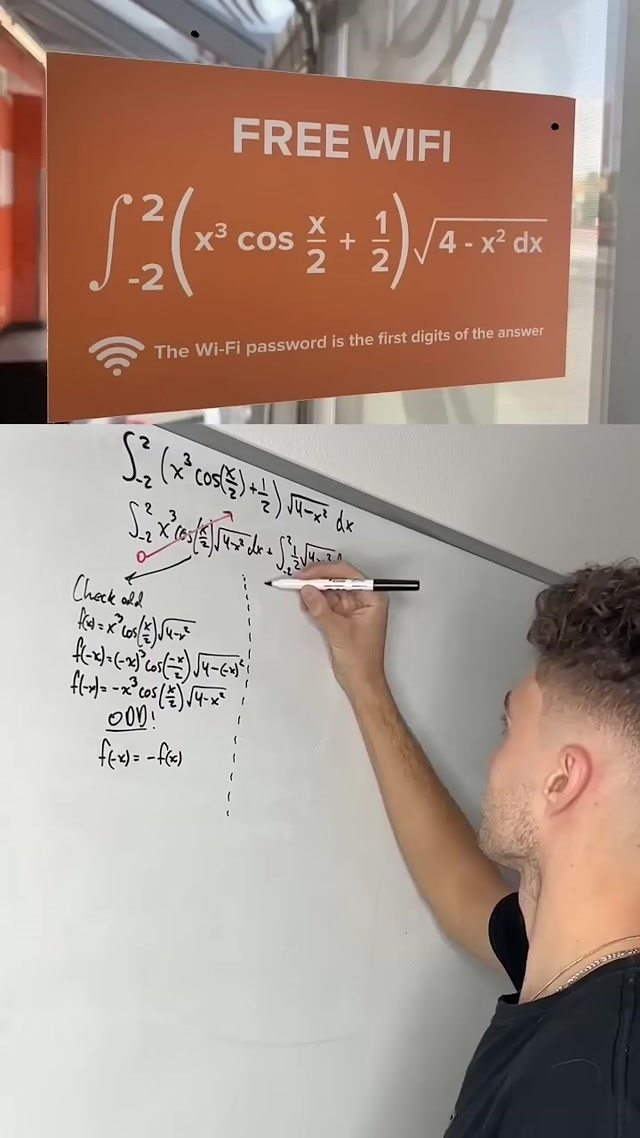 FREE WIFI
∫_{-2}^{2} (x³ cos x/2 + 1/2) √(4 - x² dx)
The Wi-Fi password is the first digits of the answer
∫_{-2}^{2} (x³ cos(x/2) + 1/2) √(4-x²) dx
∫_{-2}^{2} x³ cos(x/2) √(4-x²) dx + ∫_{-2}^{2} 1/2 √(4-x²)
0
Check odd
f(x) = x³ cos(x/2) √(4-x²)
f(-x) = (-x)³ cos(-x/2) √(4-(-x)²)
f(-x) = -x³ cos(x/2) √(4-x²)
ODD!
f(-x) = -f(x)